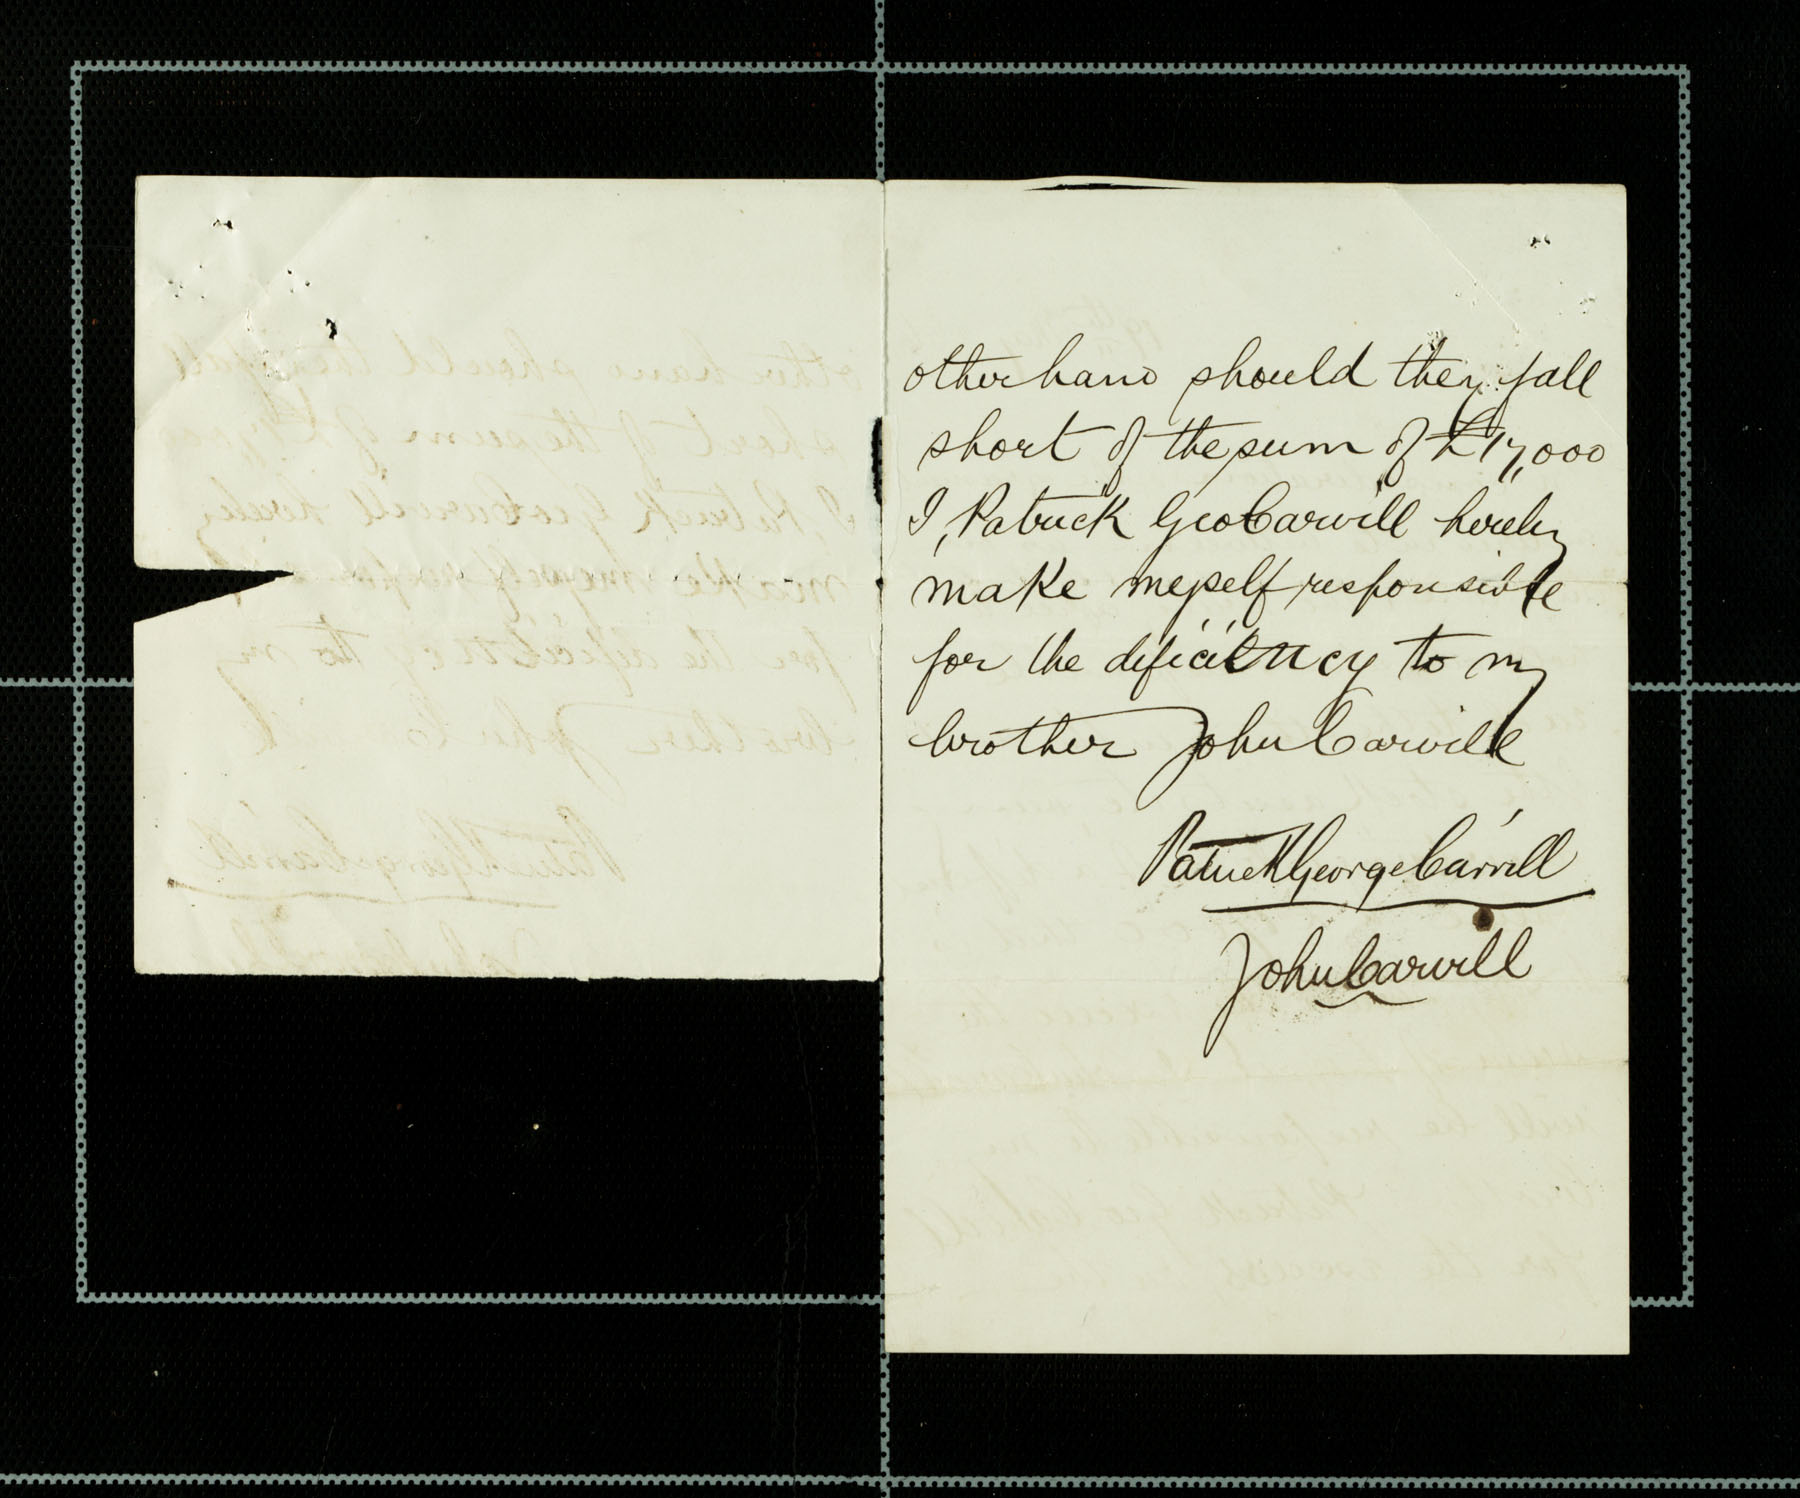 other hand should they fall
short of the sum of £17,000
I, Patrick Geo Carvill hereby
make meyself responsible
for the deficiency to my
brother John Carvill
Patrick George Carvill
John Carvill